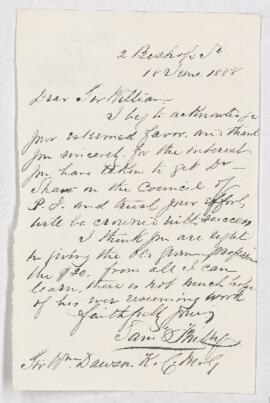 2 Bishop St
18 June 1888
Dear Sir William
I beg to acknowledge
your esteemed favor, and thank
you sincerely for the interest
you have taken to get Dr
Shaw on the Council of
P. I. and trust your efforts
will be crowned with success
I think you are right
in giving the
the from all I can
learn, there is not much hope
of his ever resuming work
Faithfully yours
Sir Wm Dawson. K. C. M. G.